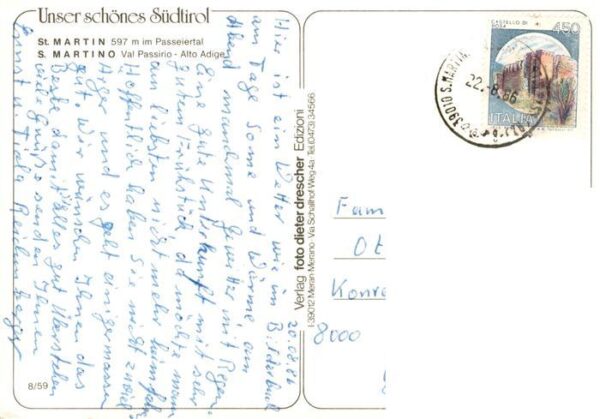 Unser schönes Südtirol
St. MARTIN 597 m im Passeiertal
S. MARTINO Val Passirio - Alto Adige
20.08.86
Hier ist ein Wetter wie im Bilderbuch
am Tage Sonne und Wärme, am
Abend manchmal Gewitter mit Regen.
Eine gute Unterkunft mit sehr
gutem Frühstück, da möchte man
am liebsten nicht mehr heimfahren
Hoffentlich haben Sie nicht zuviel
Ärger und es geht einigermassen
gut. Wir wünschen Ihnen das
Beste, damit Sie alles gut überstehen
viele Grüße senden Ihnen
Ernst u.
8/59
Verlag foto dieter drescher Edizioni
I-39012 Meran Merano · Via Schallhof Weg 4a · Tel. (0473) 34566
CASTELLO DI
ROSA
450
ITALIA
39010 S. MARTIN
22.-8.86
Fam
Ot
Konra
8000